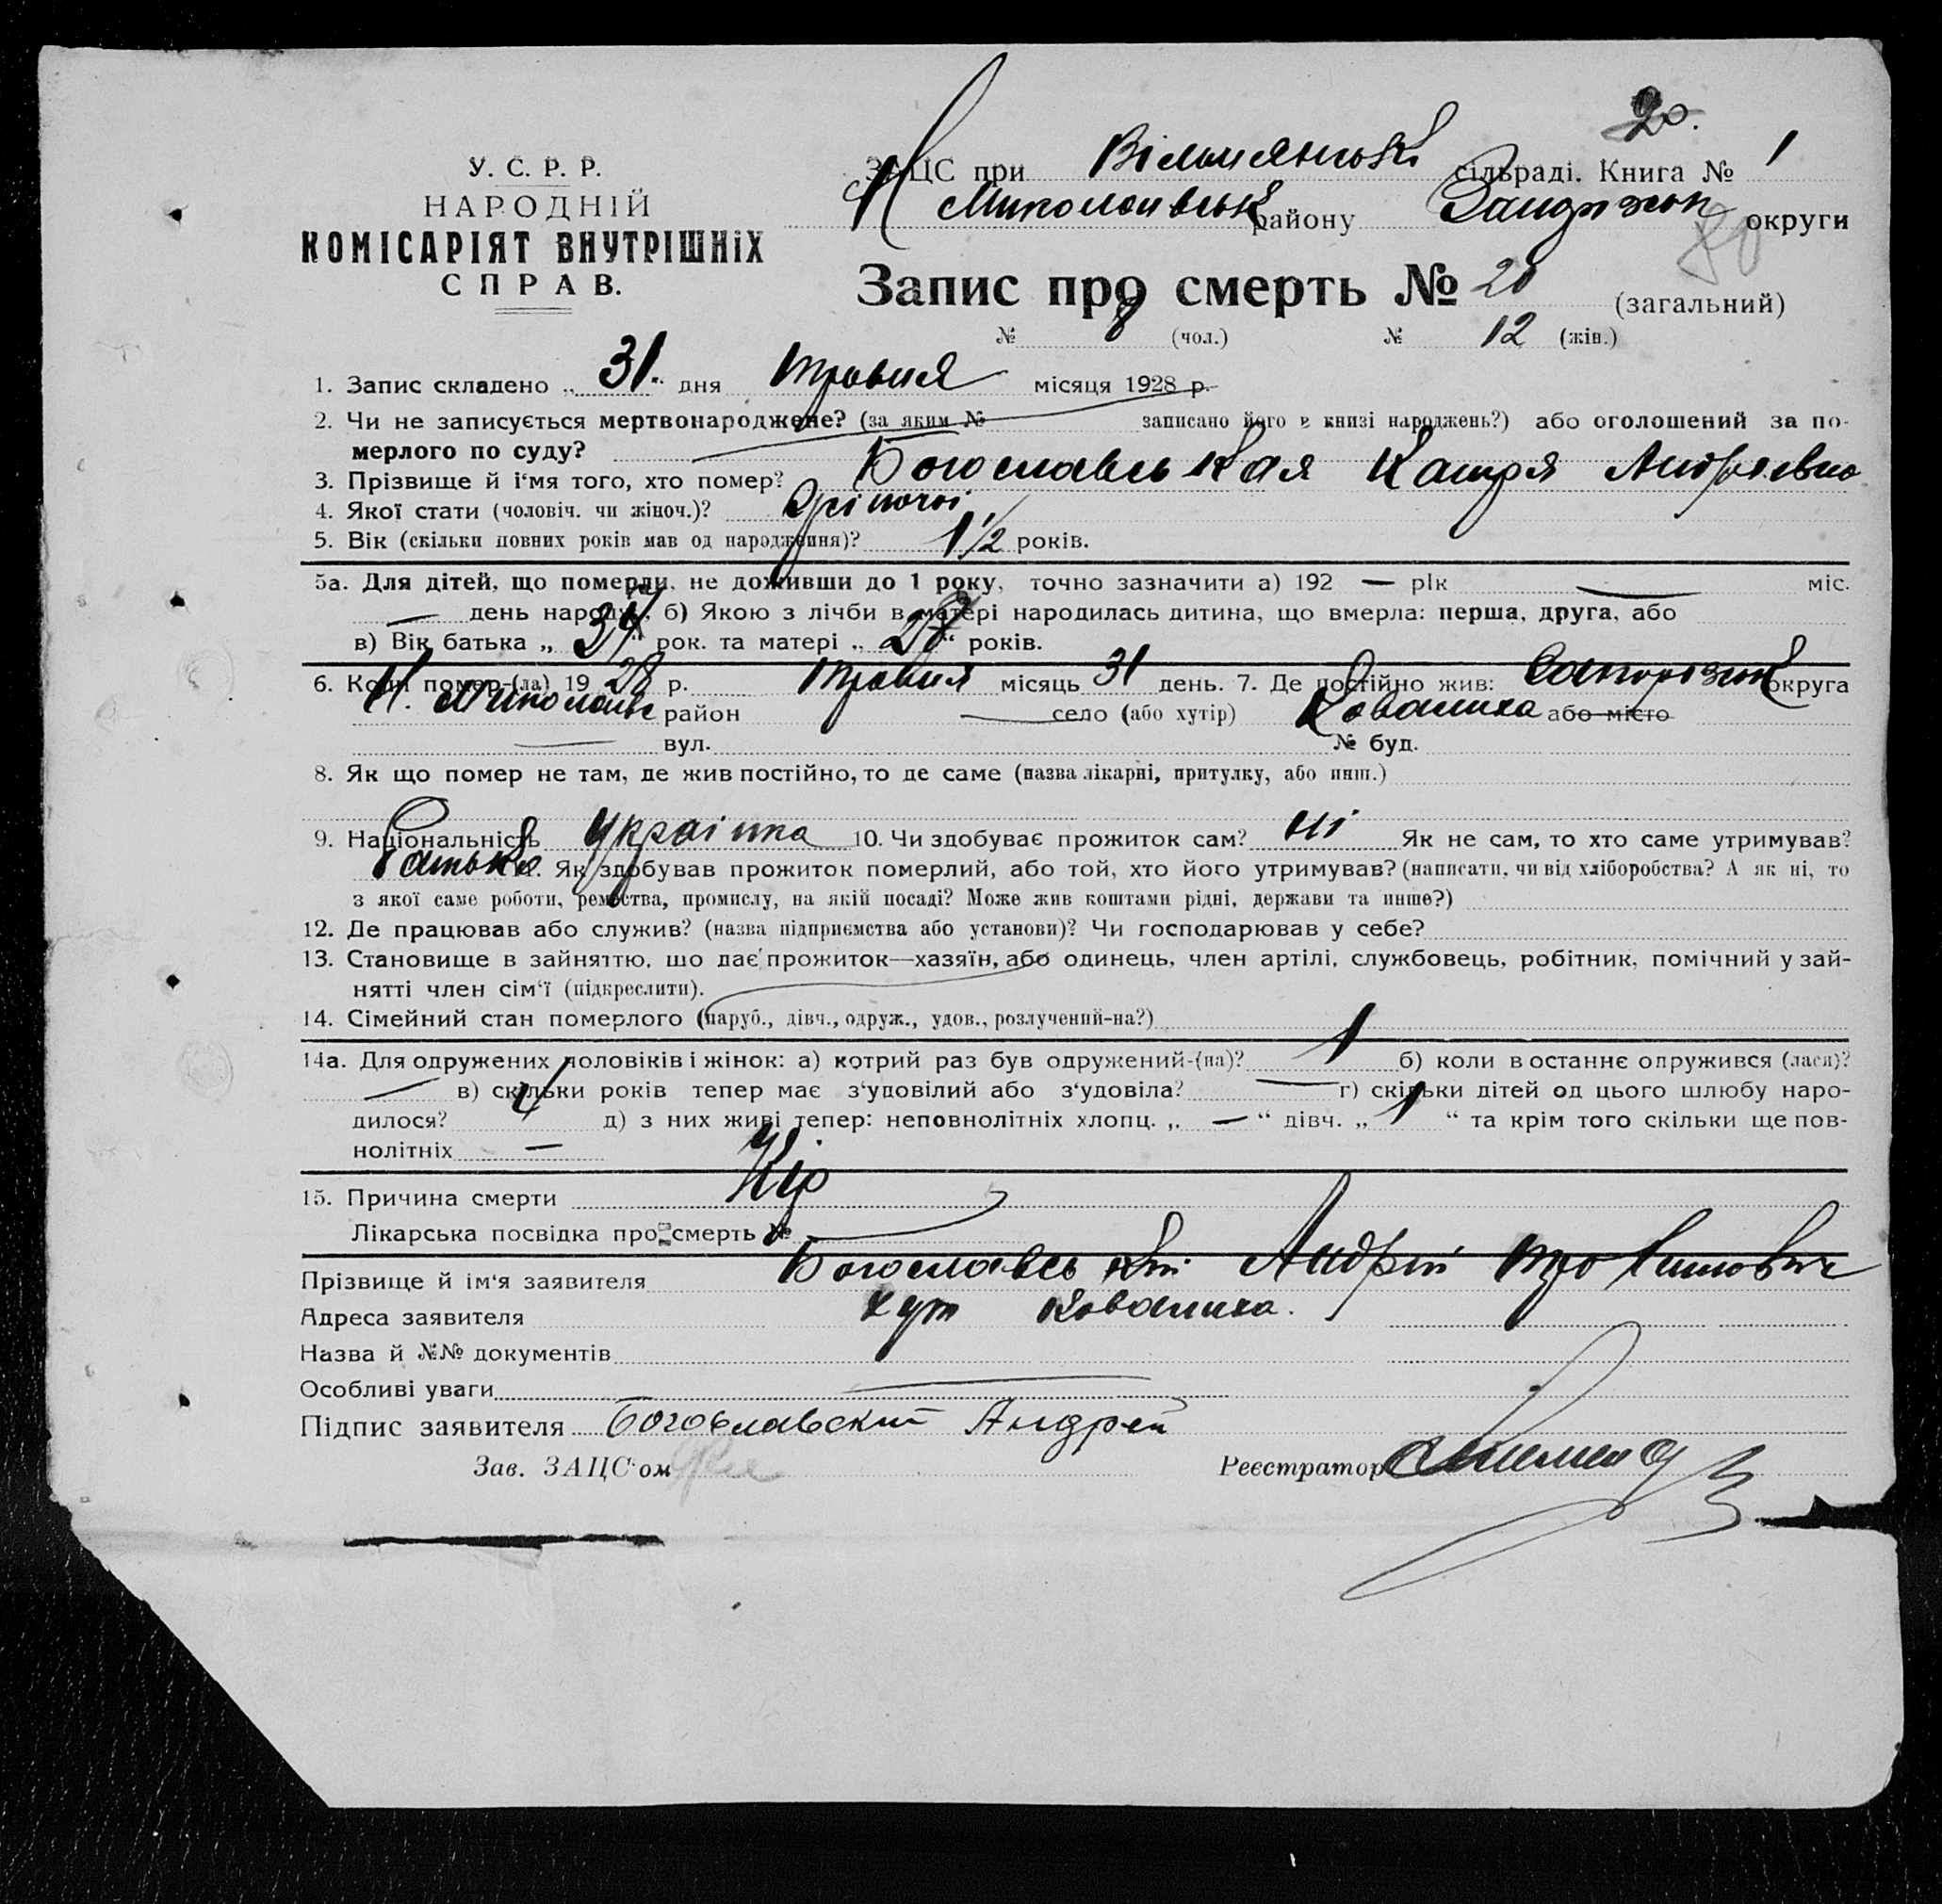 20.
У. С. Р. Р.
НАРОДНІЙ
КОМІСАРІЯТ ВНУТРІШНІХ
СПРАВ.
ЗАЦС при Вільнянській сільраді. Книга № 1
Н Миколаївськ району Запоріжж округи
80
Запис про смерть № 20 (загальний)
№ 8 (чол.) № 12 (жін.)
1. Запис складено „ 31 " дня травня місяця 1928 р.
2. Чи не записується мертвонароджене? (за яким № записано його в книзі народжень?) або оголошений за по-
мерлого по суду?
3. Прізвище й і'мя того, хто помер? Богославськая Катря Андріївна
4. Якої стати (чоловіч. чи жіноч.)? жіночоі
5. Вік (скільки повних років мав од народження)? 1 1/2 років.
5а. Для дітей, що померли, не доживши до 1 року, точно зазначити а) 192 — рік — міс.
— день народж. б) Якою з лічби в матері народилась дитина, що вмерла: перша, друга, або
в) Вік батька „ 34 " рок. та матері „ 28 " років.
6. Коли помер-(ла) 19 28 р. травня місяць 31 день. 7. Де постійно жив: Запоріжж округа
Н. Миколаївс район — село (або хутір) Ковалиха або місто
— вул. № буд.
8. Як що помер не там, де жив постійно, то де саме (назва лікарні, притулку, або инш.)
9. Національність Українка 10. Чи здобуває прожиток сам? ні Як не сам, то хто саме утримував?
батько. Як здобував прожиток померлий, або той, хто його утримував? (написати, чи від хліборобства? А як ні, то
з якої саме роботи, ремества, промислу, на якій посаді? Може жив коштами рідні, держави та инше?)
12. Де працював або служив? (назва підприємства або установи)? Чи господарював у себе?
13. Становище в зайняттю, що дає прожиток—хазяїн, або одинець, член артілі, службовець, робітник, помічний у зай-
нятті член сім'ї (підкреслити).
14. Сімейний стан померлого (паруб., дівч., одруж., удов., розлучений-на?)
14а. Для одружених чоловіків і жінок: а) котрий раз був одружений-(на)? 1 б) коли востаннє одружився (лася)?
— в) скільки років тепер має з'удовілий або з'удовіла? — г) скільки дітей од цього шлюбу наро-
дилося? 4 д) з них живі тепер: неповнолітніх хлопц. „ — " дівч. „ 1 " та крім того скільки ще пов-
нолітніх —
15. Причина смерти Кір
Лікарська посвідка про смерть № —
Прізвище й ім'я заявителя Богославський Андрій Трохимович
Адреса заявителя хут Ковалиха.
Назва й №№ документів
Особливі уваги —
Підпис заявителя Богославский Андрей
Зав. ЗАЦС'ом Реєстратор